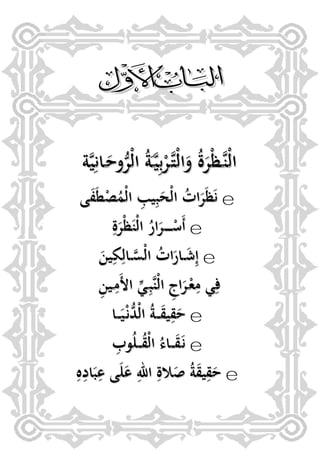 البَابُ الأَوَّلُ
النَّظْرَةُ وَالتَّرْبِيَّةُ الرُّوحَانِيَّة
℮ نَظَرَاتُ الْحَبِيبِ الْمُصْطَفَى
℮ أَسْـــرَارُ النَظْرَةِ
℮ إِشَارَاتُ السَّالِكِينَ
فِي مِعْرَاجِ النَّبِيِّ الأَمِينِ
℮ حَقِيقَـةُ الْدُّنْيَـا
℮ نَقَـاءُ الْقُلُـوبِ
℮ حَقِيقَةُ صَلاةِ اللهِ عَلَى عِبَادِهِ